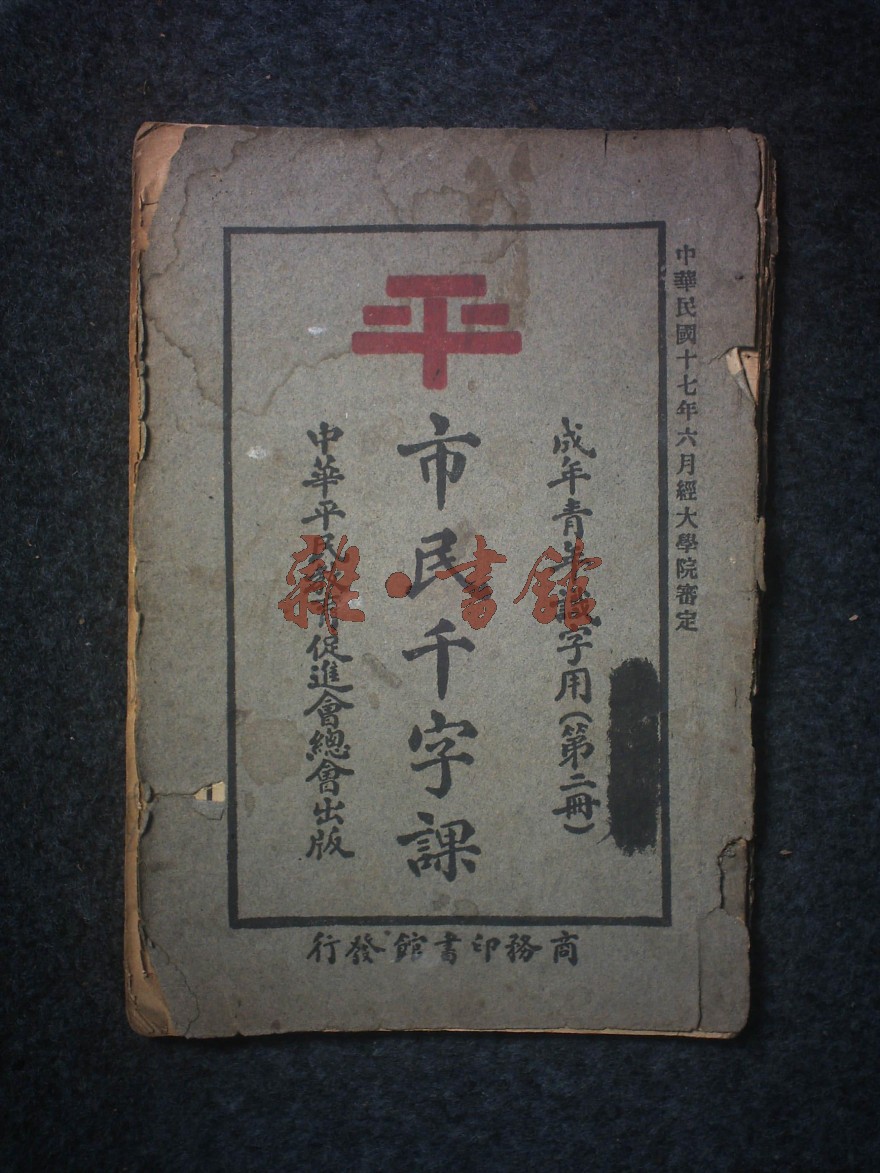 中華民國十七年六月經大學院審定
成年青年識字用(第二冊)
市民千字課
中華平民教育促進會總會出版
商務印書館發行
平
雜·書館